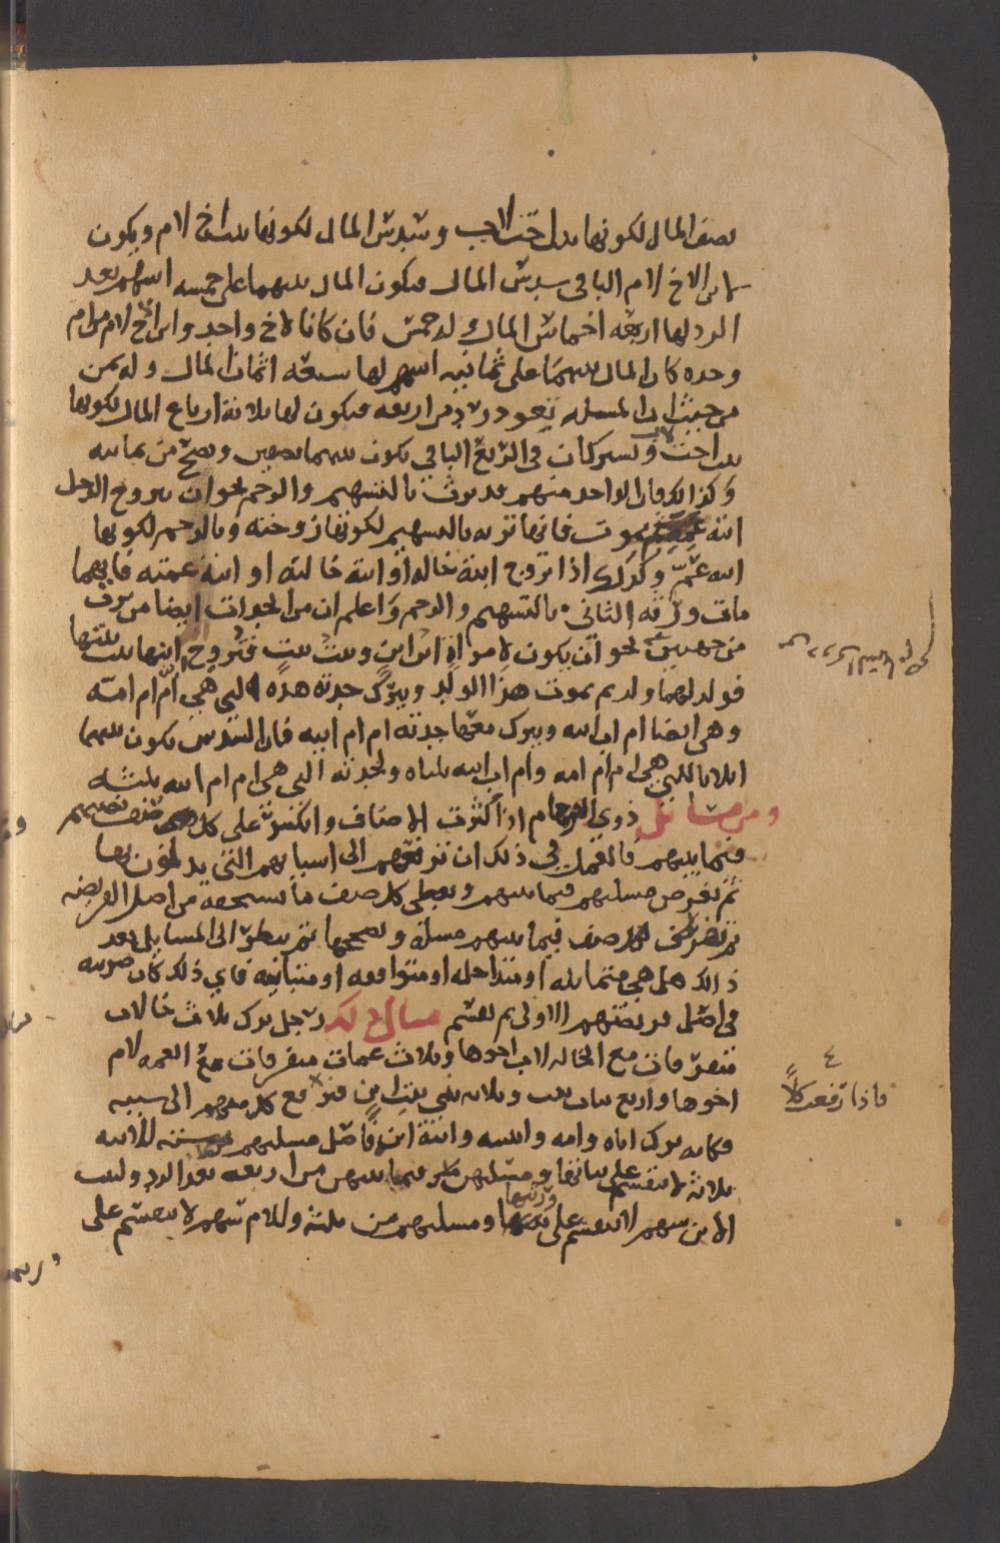 نصف المال لكونها بنت اخت لاب وسدس المال لكونها بنت اخ لام ويكون
لابن الاخ لام الباقي سدس المال فيكون المال بينهما على خمسه اسهم بعد
الرد لها اربعه اخماس المال وله خمس فان كانا لاخ واحد وابن اخ لام من ام
وحده كان المال بينهما على ثمانيه اسهم لها سبعه اثمان المال وله ثمن
من حيث ان المسله تعود من اربعه فيكون لها ثلاثة ارباع المال لكونها
بنت اخت لاب ويشتركان في الربع الباقي يكون بينهما نصفين وتصح من ثمانيه
وكذالك فان الواحد منهم قد يرث بالتسهيم والرحم نحو ان يتزوج الرجل
ابنة عمه ثم يموت فانها ترثه بالتسهيم لكونها زوجته وبالرحم لكونها
ابنه عمه وكذلك اذا تزوج ابنة خاله او ابنة خالته او ابنة عمته فايهما
مات ورثه الثاني بالتسهيم والرحم واعلم ان من الجدات ايضا من يرث
من جهتين نحو ان يكون لامراه ابن ابن وبنت بنت فتزوج ابنها بنت بنتها
فولد لهما ولد ثم يموت هذا الولد ويترك جدته هذه التي هي ام ام امه
وهي ايضا ام اب ابيه ويترك معها جدته ام ام ابيه فان السدس يكون بينهما
اثلاثا للتي هي ام ام امه وام اب ابيه ثلثاه ولجدته التي هي ام ام ابيه ثلثه
ومن مسائل ذوي الارحام اذا كثرت الاصناف وانكسر على كل صنف نصيبهم
فيما بينهم فالعمل في ذلك ان ترفعهم الى اسبابهم التي يدلون بها
ثم تفرض مسلتهم فيما بينهم وتعطي كل صنف ما يستحقه من اصل الفريضه
ثم تفرض كل صنف فيما بينهم مسلة وتصححها ثم ينظر الى المسايل بعد
ذالك هل هي متماثله او متداخله او متوافقه او متباينه فاي ذلك كان ضربته
في اصل فريضتهم الاولى ثم تقسم مثال ذلك رجل ترك ثلاث خالات
متفرقات مع الخاله لاب اخوها وثلاث عمات متفرقات مع العمه لام
اخوها واربع بنات بنت وثلاثه بني بنت ابن فترفع كل منهم الى سببه
فكانه ترك اباه وامه وابنته وابنة ابن فاصل مسلتهم من سته للابنه
ثلاثه لا تنقسم على بناتها ومسلتهن فيما بينهن من اربعه بعد الرد ولبنت
الابن سهم لا ينقسم على بنيها ومسلتهم من ثلثه وللام سهم لا ينقسم على
فاذا رفعت كلا